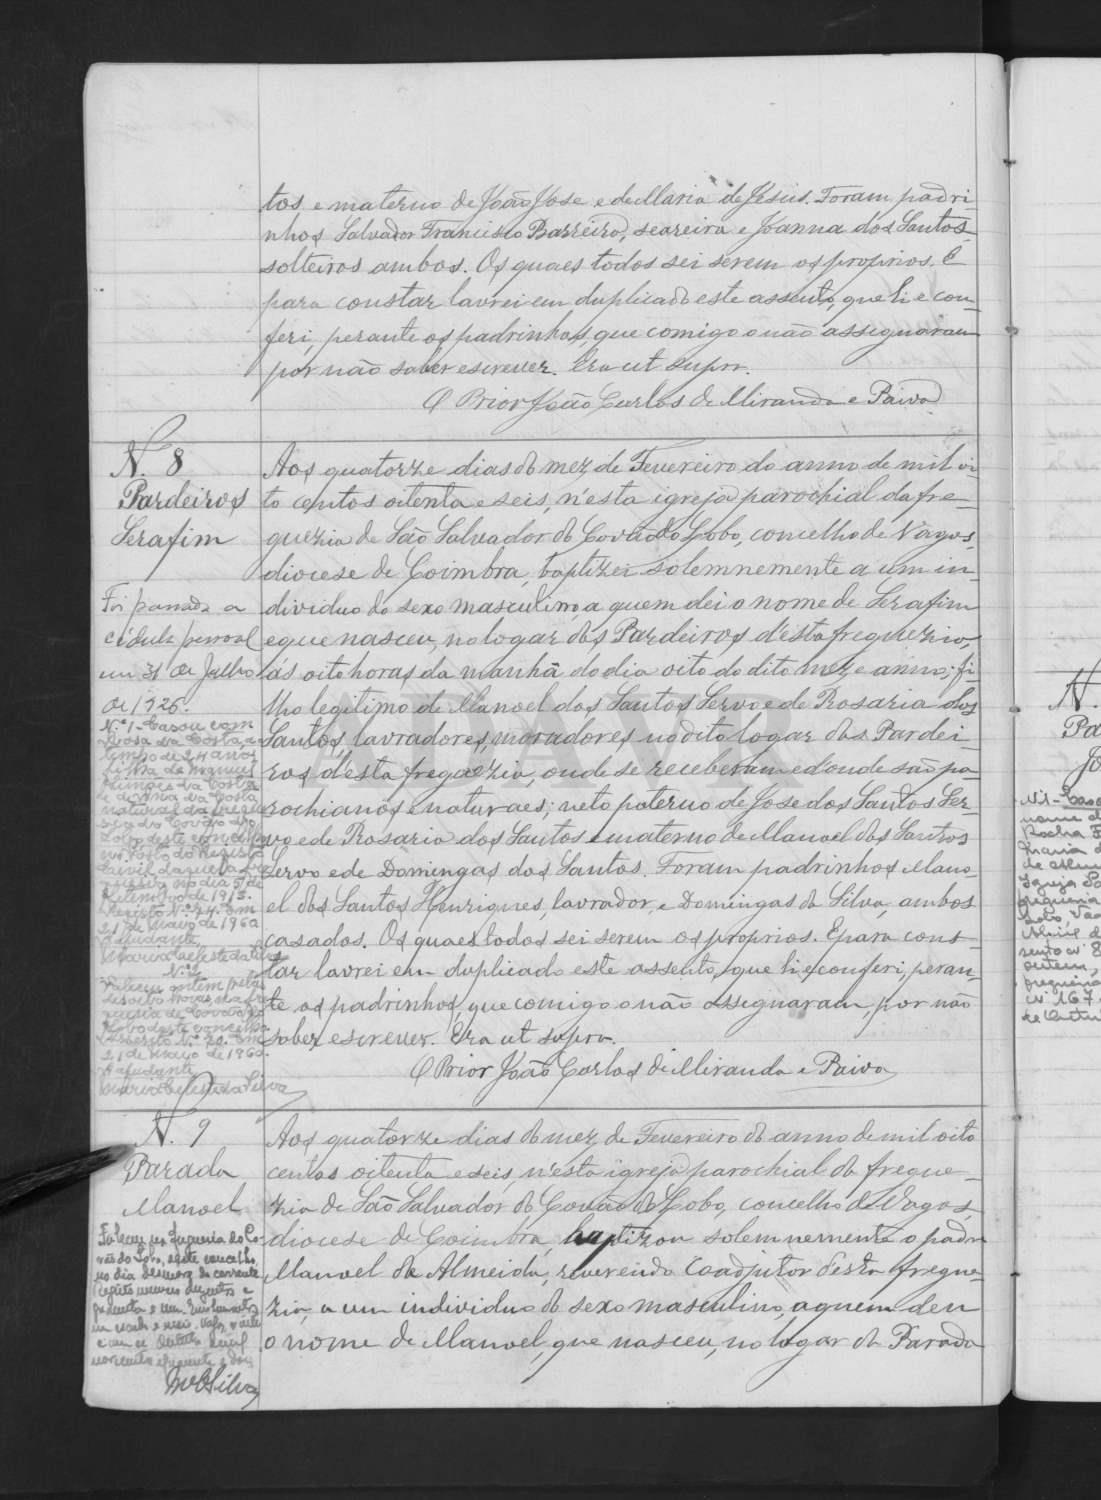 tos e materno de João José e de Maria de Jesus. Foram padri
nhos Salvador Francisco Barreiro, seareiro e Joanna dos Santos,
solteiros ambos. Os quaes todos sei serem os proprios. E
para constar lavrei em duplicado este assento, que li e con-
feri, perante os padrinhos, que comigo o não assignaram
por não saber escrever. Era ut supra.
O Prior João Carlos de Miranda e Paiva
N. 8
Pardeiros
Serafim
Foi passada a
cedula pessoal
em 31 de Julho
de 1926.
N.º 1 - Casou com
Rosa da Costa, a
tempo de 24 anos
filha de Manuel
da Costa
e de da Costa
natural da fregue
sia do Covão do
Lobo deste concelho
no Posto do Registo
Civil daquela fre
guesia no dia 5 de
Setembro de 1913.
Registo N.º 24. Em
21 de Março de 1960
A ajudante,
Maria Celeste da Silva
N.º 2
Faleceu ontem pelas
dezoito horas, na fre
guesia de Covão do
Lobo deste concelho.
Assento N.º 20. Em
21 de Março de 1960.
A ajudante
Maria Celeste da Silva
Aos quatorze dias do mez de Fevereiro do anno de mil oi-
to centos oitenta e seis, n'esta igreja parochial da fre-
guezia de São Salvador do Covão do Lobo, concelho de Vagos,
diocese de Coimbra, baptizei solemnemente a um in-
dividuo do sexo masculino, a quem dei o nome de Serafim
e que nasceu, no logar dos Pardeiros d'esta freguezia,
ás oito horas da manhã do dia oito do dito mez e anno; fi-
lho legitimo de Manoel dos Santos Servo e de Rosaria dos
Santos, lavradores, moradores no dito logar dos Pardei-
ros d'esta freguezia, onde se receberam e donde são pa-
rochianos e naturaes; neto paterno de Jose dos Santos Ser-
vo e de Rosaria dos Santos e materno de Manoel dos Santos
Servo e de Domingas dos Santos. Foram padrinhos Mano-
el dos Santos Henriques, lavrador, e Domingas da Silva, ambos
casados. Os quaes todos sei serem os proprios. E para cons-
tar lavrei em duplicado este assento, que li e conferi, peran-
te os padrinhos, que comigo o não assignaram, por não
saber escrever. Era ut supra.
O Prior João Carlos de Miranda e Paiva
N. 9
Parada
Manoel
Faleceu na freguesia do Co-
vão do Lobo, deste concelho,
no dia dezanove do corrente
Registo numero duzentos e
quarenta e um.
Vagos, vinte
e um de Outubro de mil
novecentos e quarenta e dois
M C Silva
Aos quatorze dias do mez de Fevereiro do anno de mil oito
centos oitenta e seis, n'esta igreja parochial da fregue-
zia de São Salvador do Covão do Lobo, concelho de Vagos,
diocese de Coimbra, baptizou solemnemente o padre
Manoel de Almeida, reverendo Coadjutor d'esta fregue-
zia, a um individuo do sexo masculino, a quem deu
o nome de Manoel, que nasceu, no logar da Parada
N.
Pa
Jo
Nº1 - Casou
nome de
Rocha
Maria d
Igreja
freguesia
Lobo, Va
N 167
de Outu